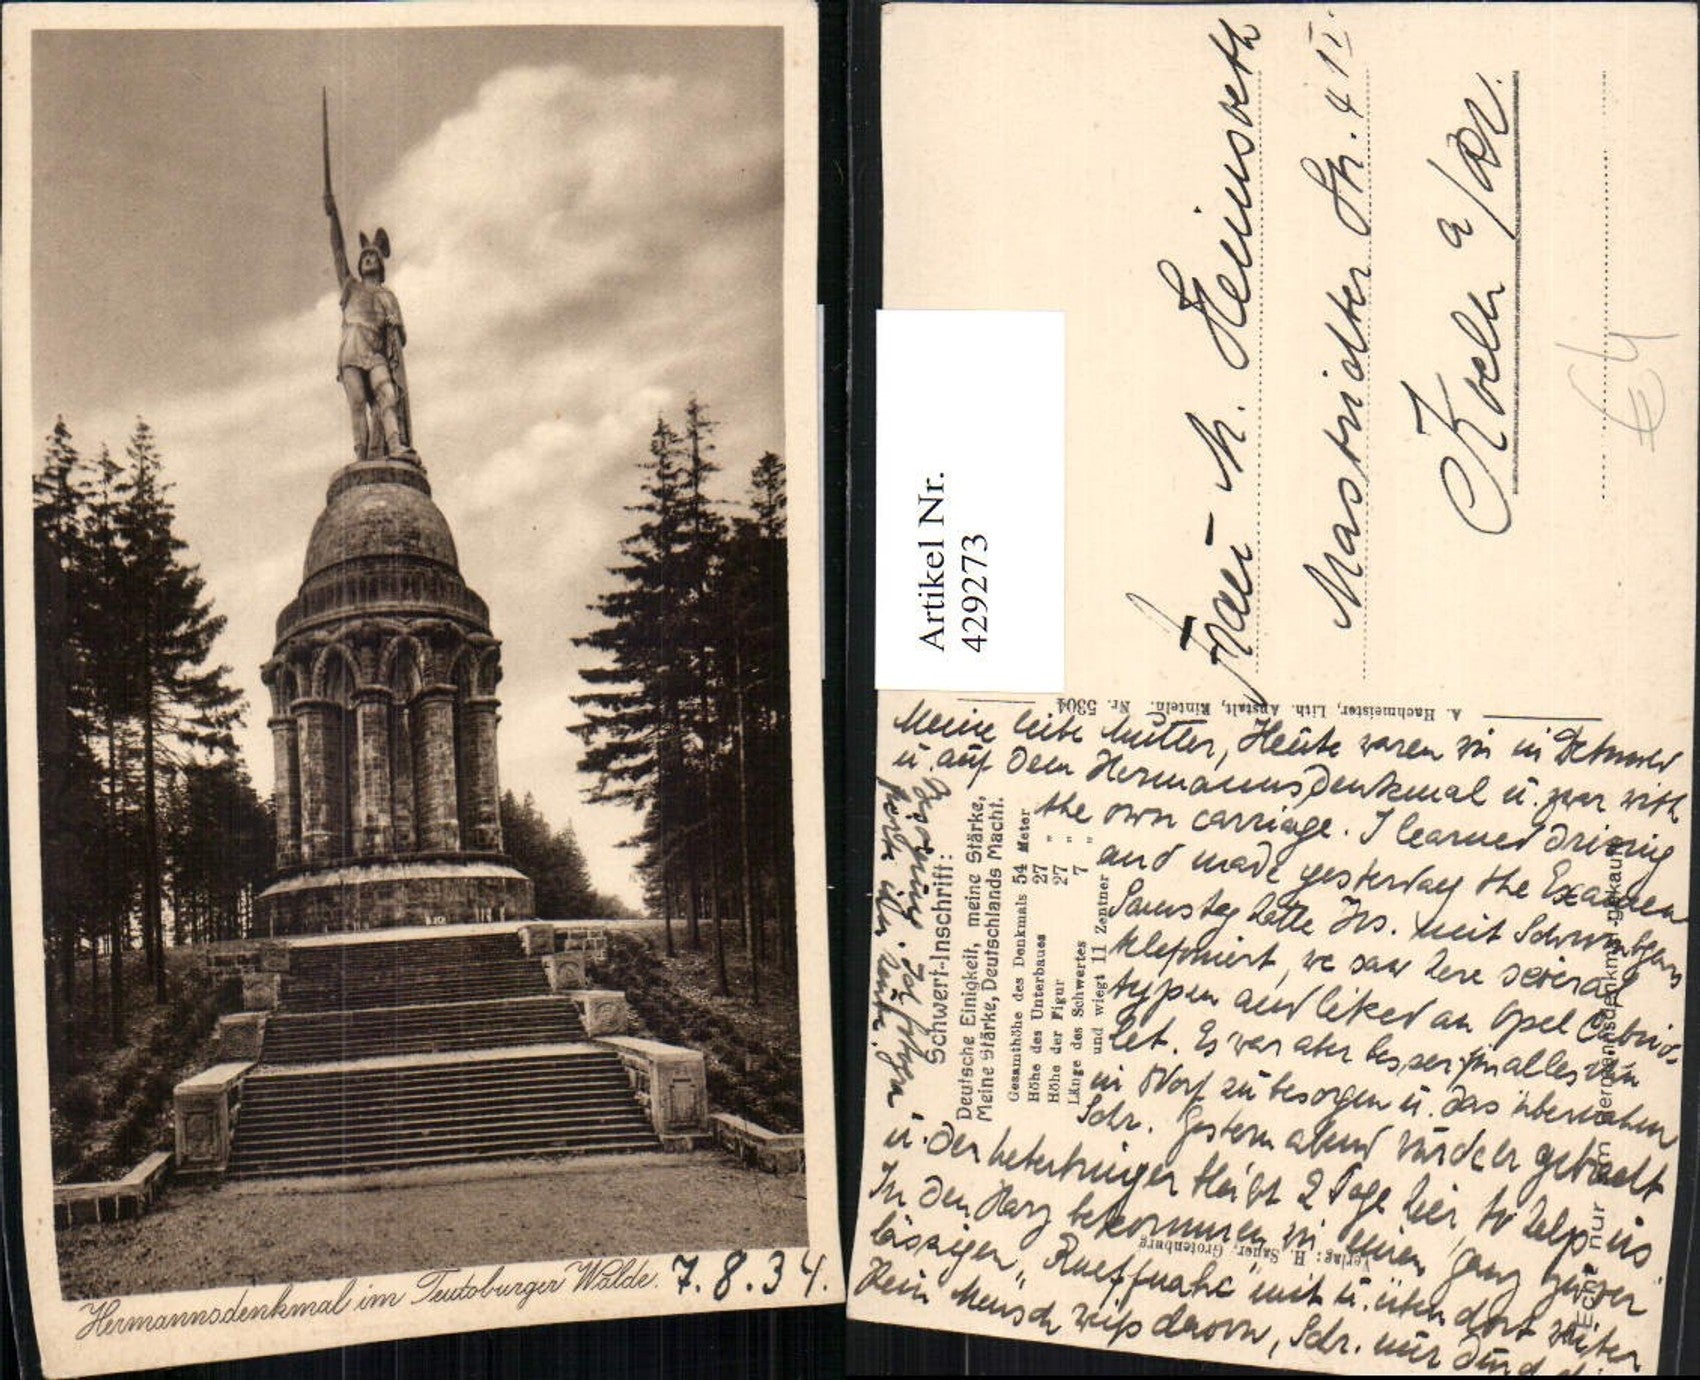 Hermannsdenkmal im Teutoburger Walde.
7. 8. 34.
Artikel Nr.
429273
Frau M. Heinsveth
Mastrichter Str. 4 II.
Koeln a/Rh.
€ 4
A. Hachmeister, Lith. Anstalt, Rinteln. Nr. 5304
Schwert-Inschrift:
Deutsche Einigkeit, meine Stärke,
Meine Stärke, Deutschlands Macht.
Gesamthöhe des Denkmals 54 Meter
Höhe des Unterbaues 27 "
Höhe der Figur 27 "
Länge des Schwertes 7 "
und wiegt 11 Zentner
Verlag: H. Sauer, Grotenburg
Echt nur am Hermannsdenkmal gekauft
Meine liebe Mutter, Heute waren wir in Detmold
u. auf dem Hermannsdenkmal u. zwar with
the own carriage. I learned driving
and made yesterday the Examen
Samstag hatte Hrs. mit
telefoniert, we saw here several
typen and liked an Opel Cabrio-
let. Es war aber besser, alles
in Dorf zu besorgen u. das übernahm
Schr. Gestern abend wurde er gebracht
u. der bleibt 2 Tage hier, to help us
In den Harz bekommen wir einen ganz zuver-
lässigen mit u. dort weiter
Kein Mensch weiss davon, Schr. nur